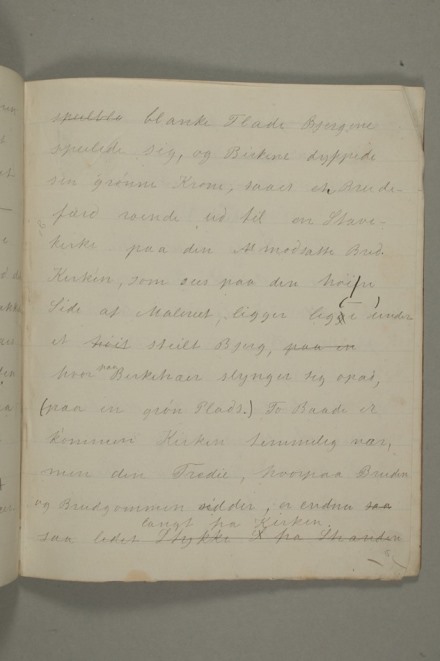 speilte blanke Flade Bjergene
speilede sig, og Birkene dyppede
sin grønne Krone, saaes et Brude-
færd roende ud til en Stave-
kirke paa den modsatte Bred.
Kirken, som sees paa den høire
Side af Maleriet, ligger lige under
et høit steilt Bjerg, paa en
hvor paa Birketræer slynger sig opad,
(paa en grøn Plads.) To Baade er
kommen Kirken temmelig nær,
men den Tredie, hvorpaa Bruden
og Brudgommen sidder, er endnu saa
langt fra Kirken
saa lidet Stykke fra Stranden